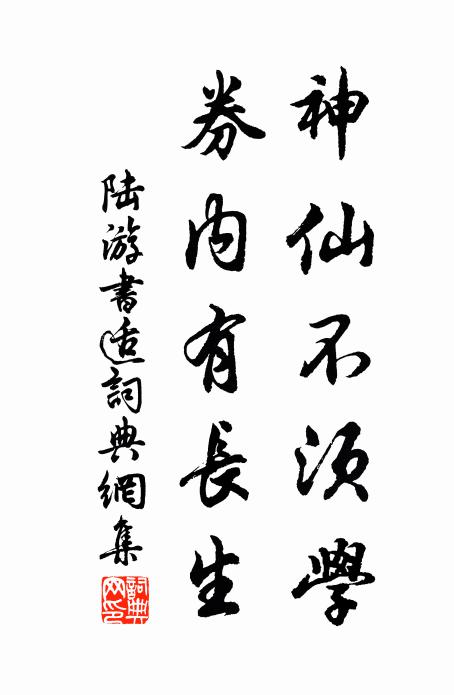 神仙不須學
券内有長生
陸游書适詞典網集
詞典網印